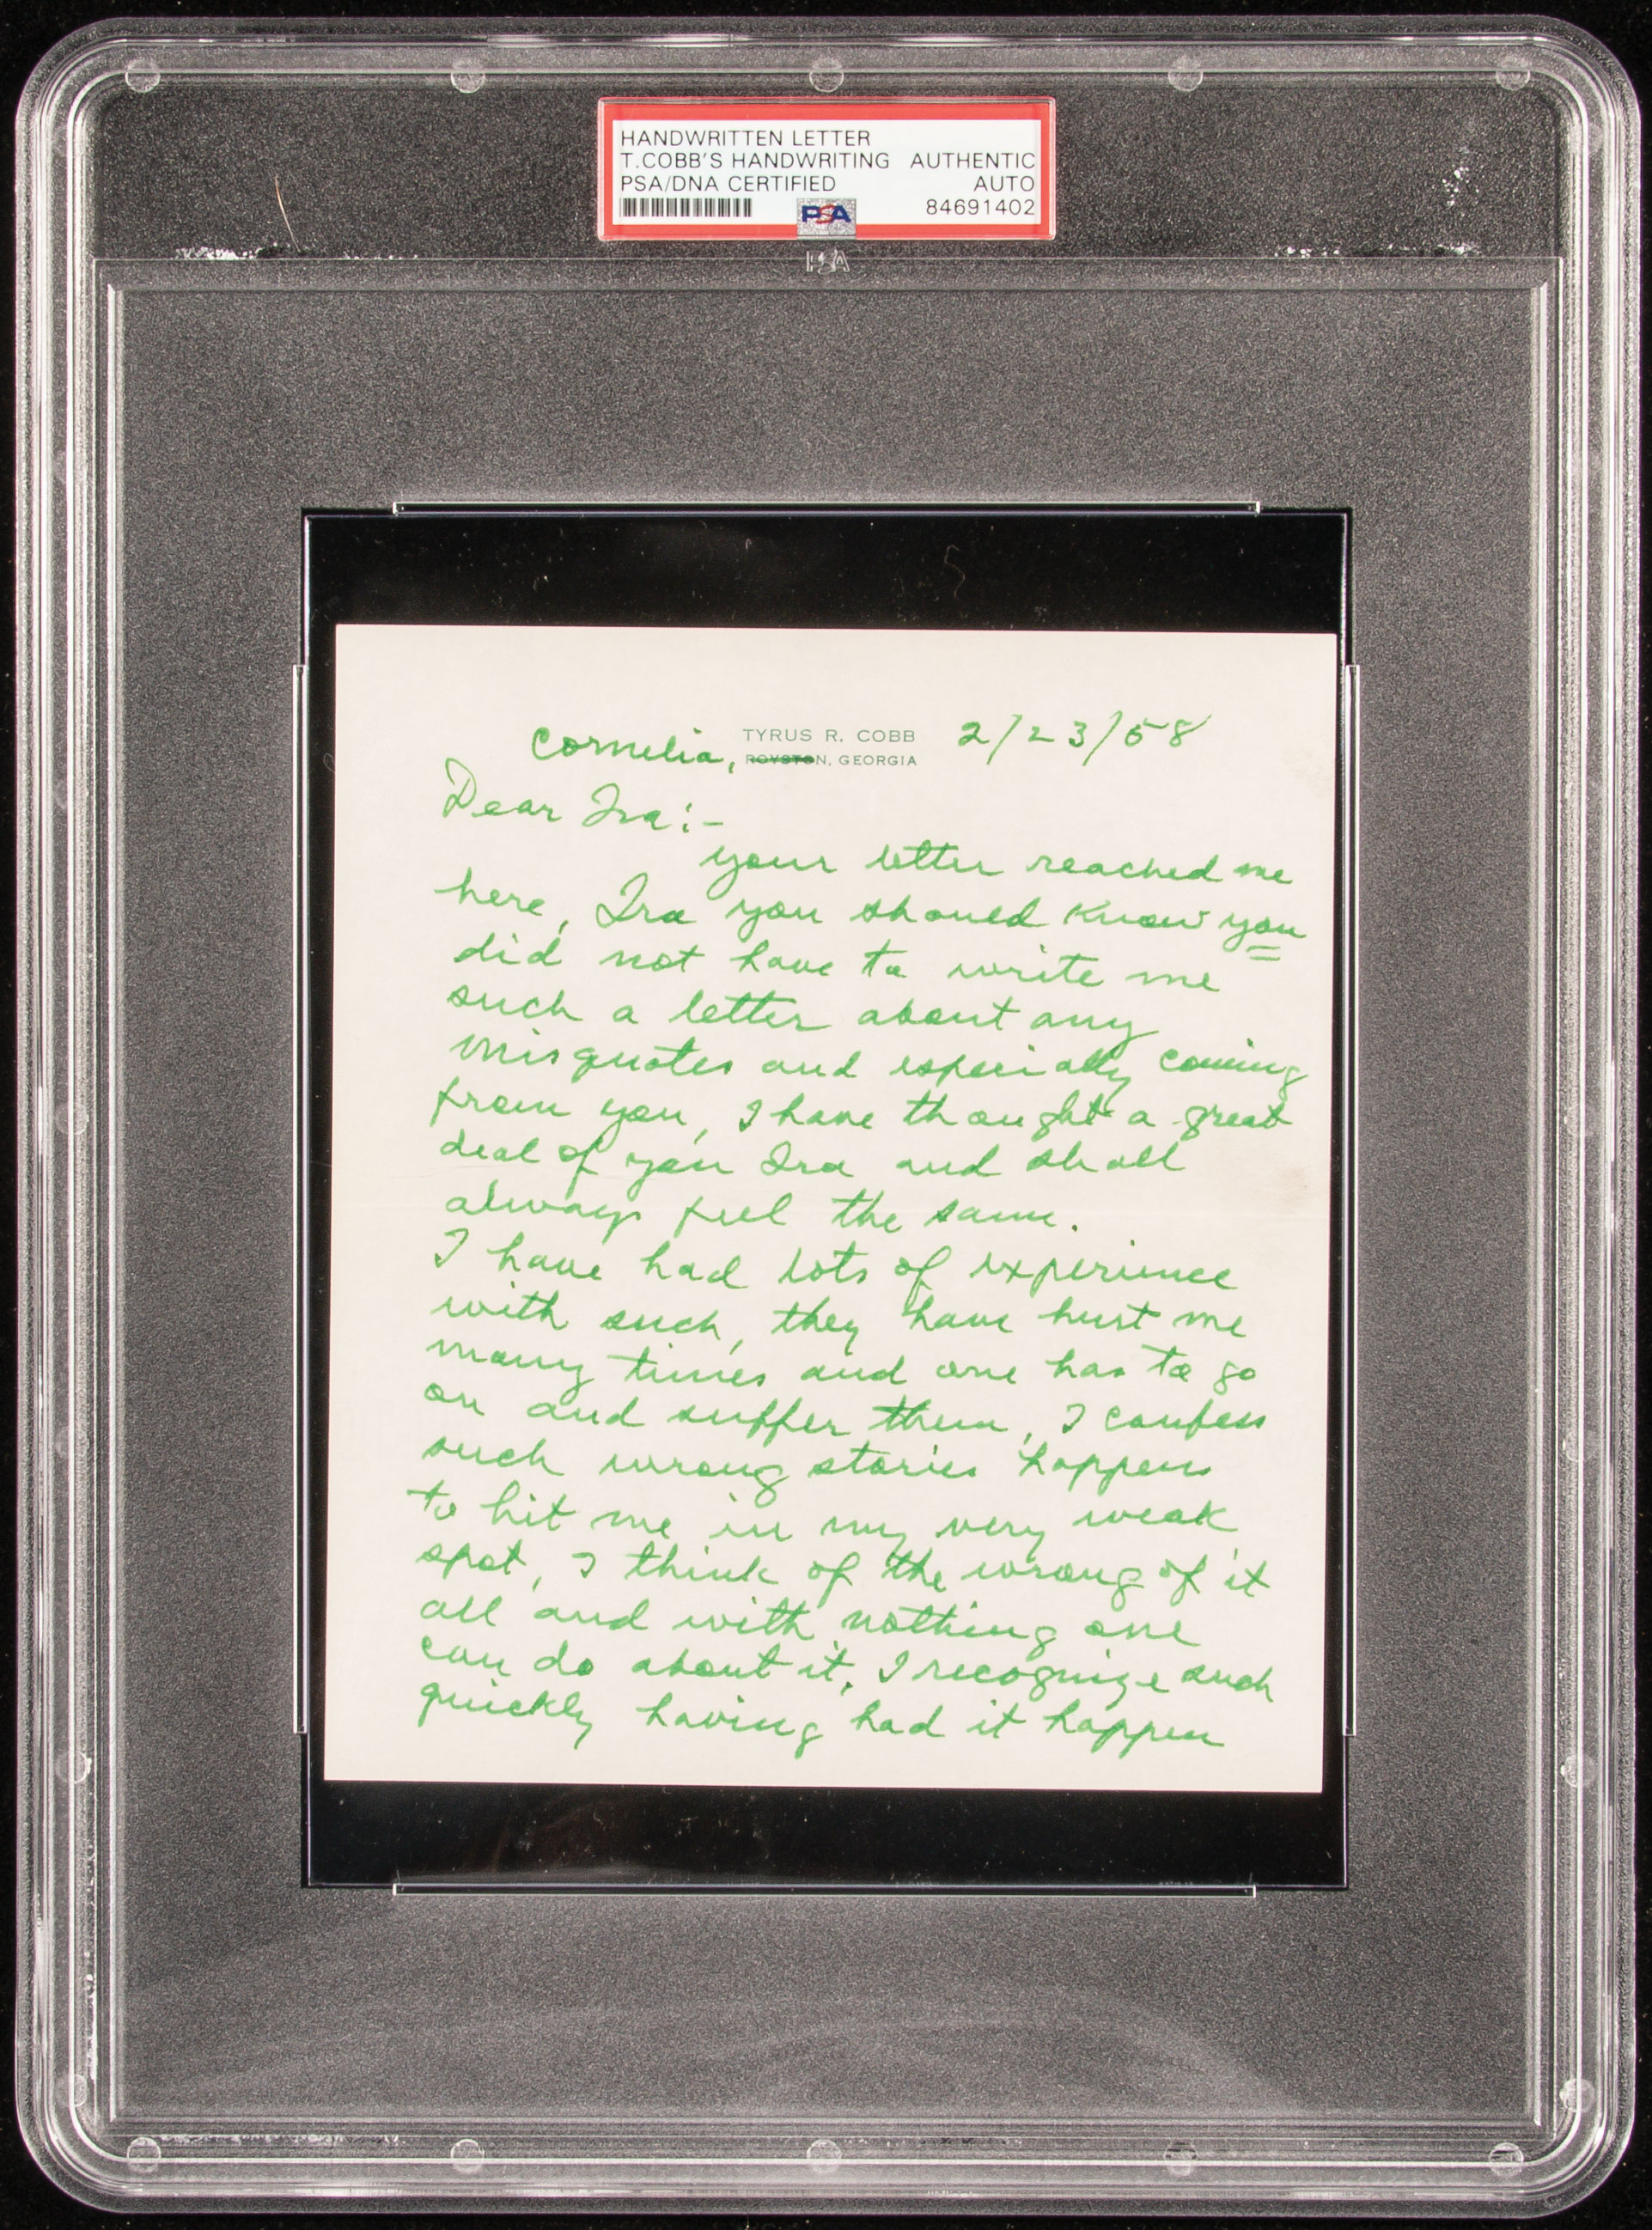 HANDWRITTEN LETTER
T.COBB'S HANDWRITING AUTHENTIC
PSA/DNA CERTIFIED AUTO
PSA 84691402
PSA
TYRUS R. COBB 2/23/58
Cornelia, ROYSTON, GEORGIA
Dear Ira:-
your letter reached me
here, Ira you should know you
did not have to write me
such a letter about any
misquotes and especially coming
from you, I have thought a great
deal of you Ira and shall
always feel the same.
I have had lots of experience
with such, they have hurt me
many times and one has to go
on and suffer them, I confess
such wrong stories happens
to hit me in my very weak
spot, I think of the wrong of it
all and with nothing one
can do about it. I recognize such
quickly having had it happen